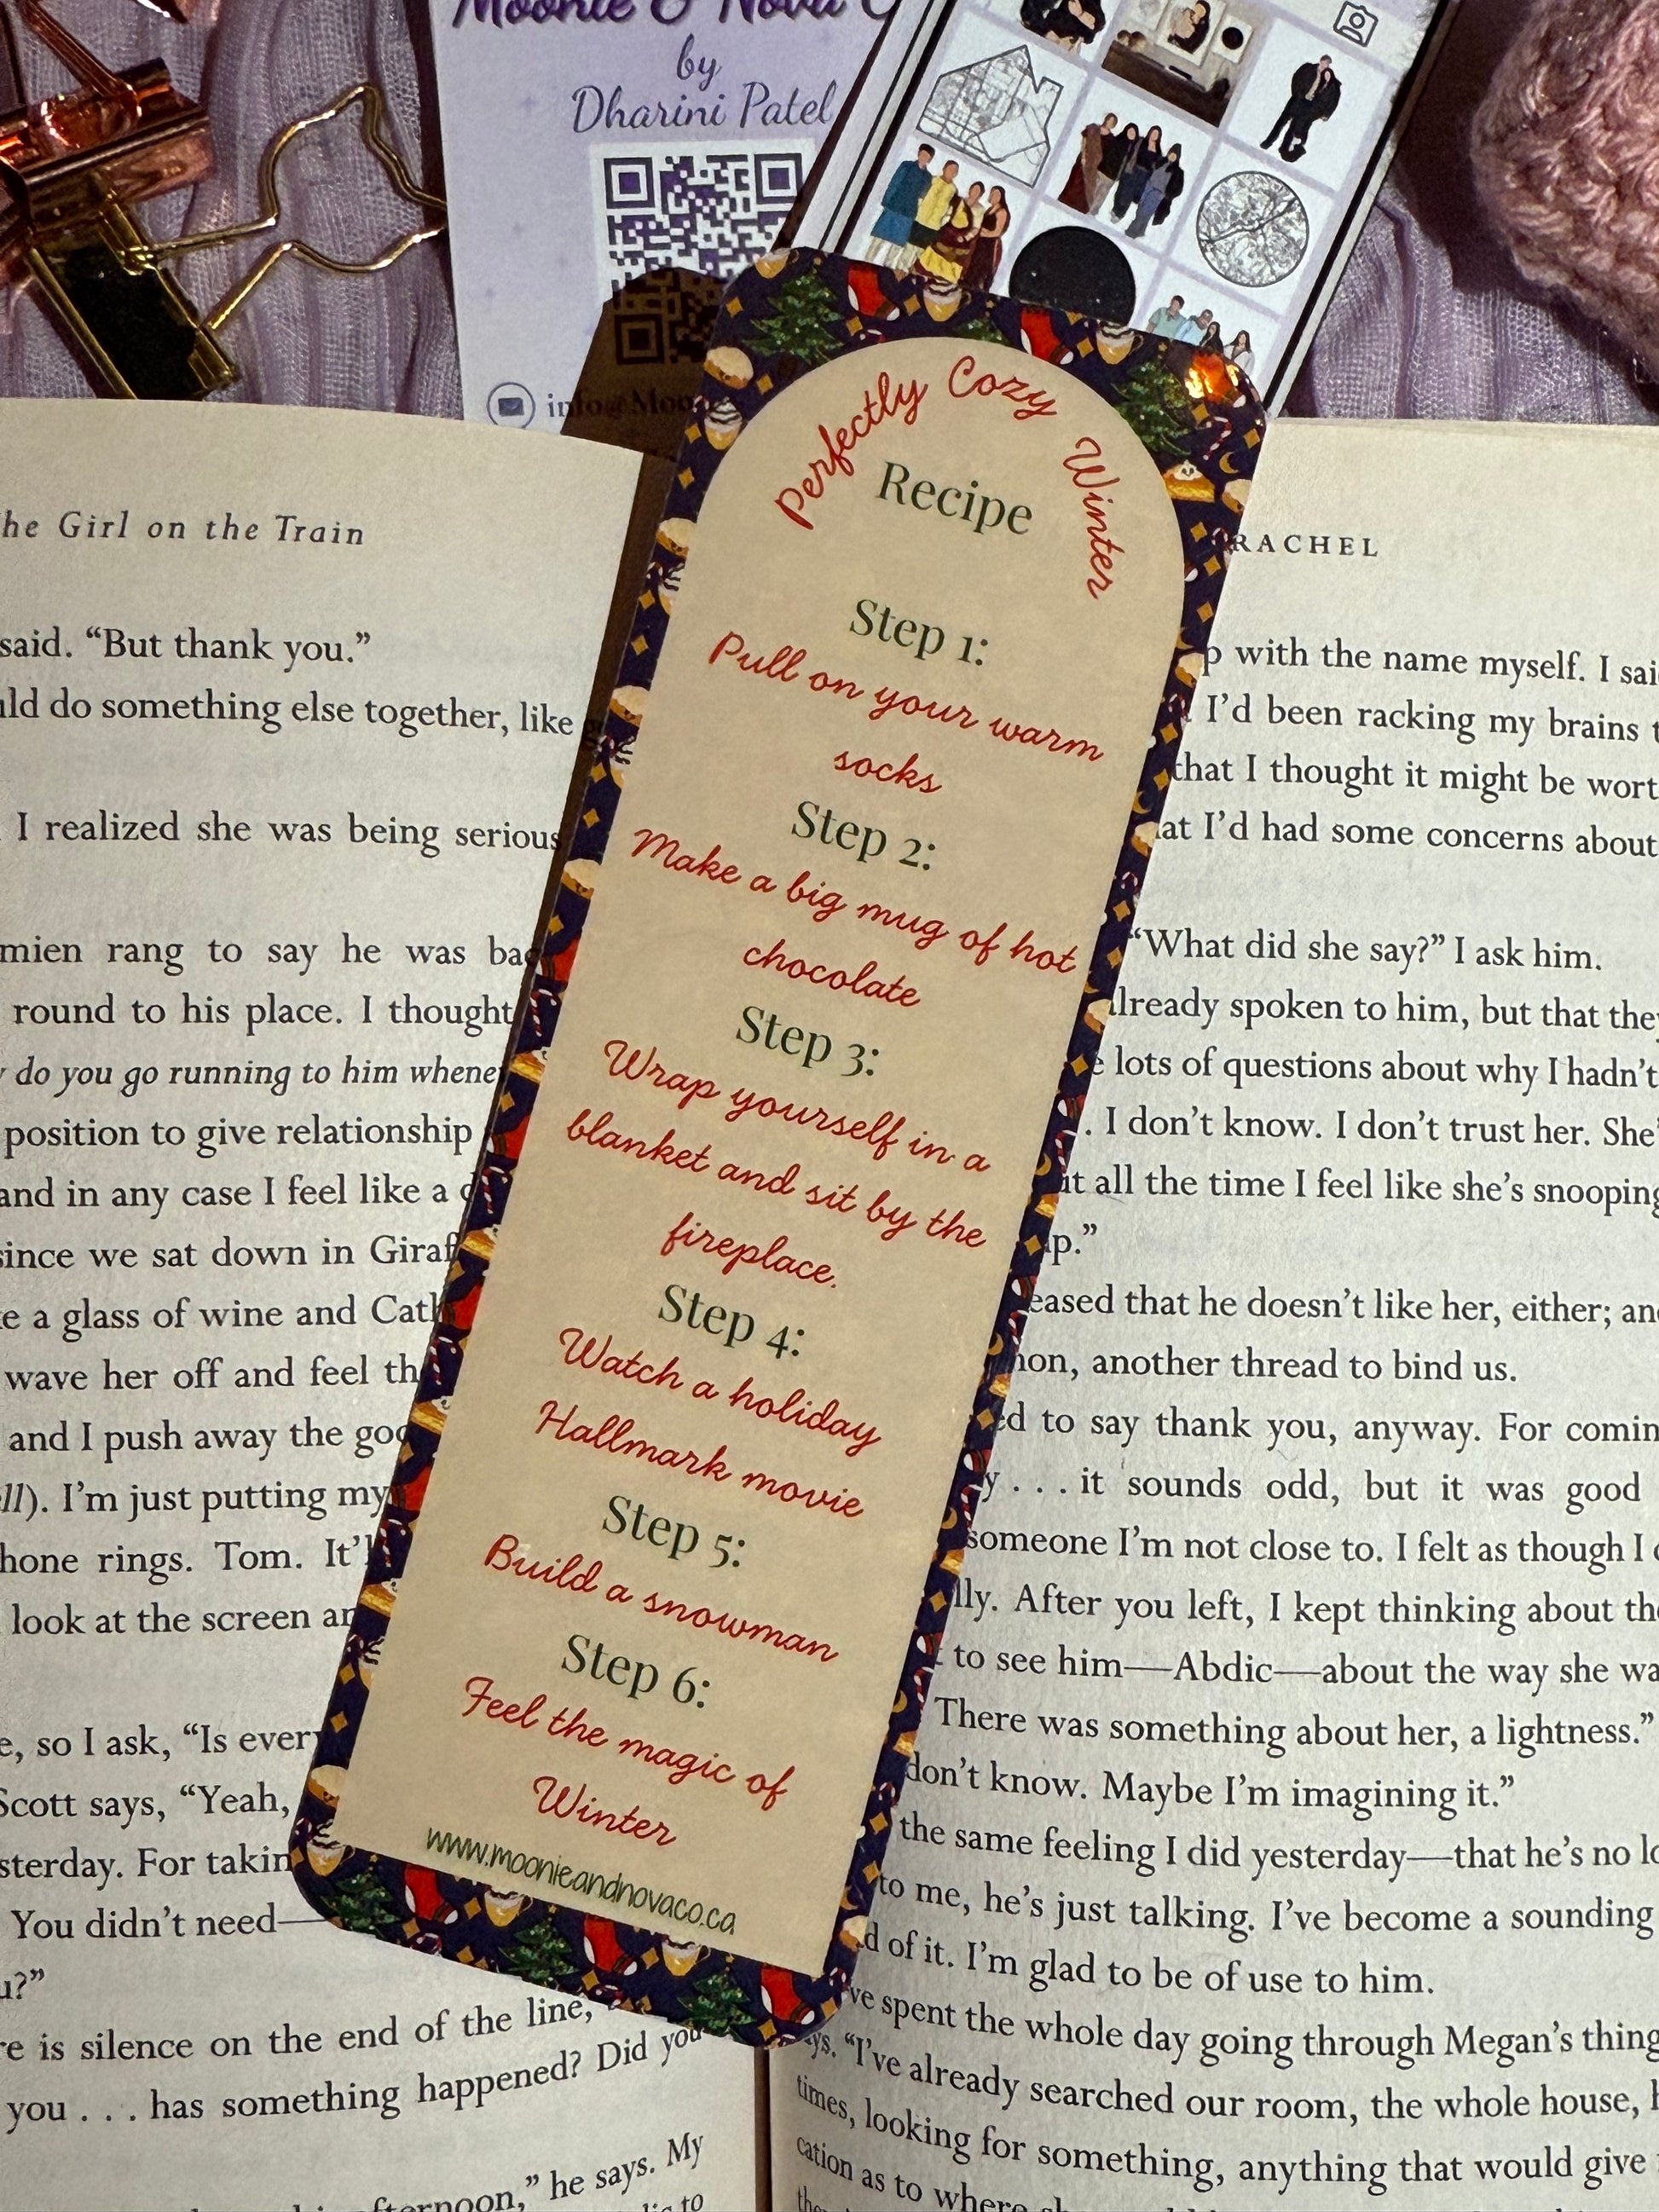 Moonie & Nova
by
Dharini Patel
Perfectly Cozy Winter
Recipe
Step 1:
Pull on your warm
socks
Step 2:
Make a big mug of hot
chocolate
Step 3:
Wrap yourself in a
blanket and sit by the
fireplace.
Step 4:
Watch a holiday
Hallmark movie
Step 5:
Build a snowman
Step 6:
Feel the magic of
Winter
www.moonieandnovaco.ca
Girl on the Train
said. “But thank you.”
do something else together, like
I realized she was being serious
rang to say he was
round to his place. I thought
do you go running to him
position to give relationship
and in any case I feel like a
since we sat down in
a glass of wine and
wave her off and feel
and I push away the
I’m just putting my
rings. Tom.
look at the screen
so I ask, “Is
Scott says, “Yeah,
For
You didn’t need—
is silence on the end of the line,
you . . . has something happened? Did you
he says. My
to
RACHEL
with the name myself. I
I’d been racking my brains
that I thought it might be
I’d had some concerns about
“What did she say?” I ask him.
already spoken to him, but that
lots of questions about why I hadn’t
. I don’t know. I don’t trust her.
all the time I feel like she’s snooping
that he doesn’t like her, either;
another thread to bind us.
to say thank you, anyway. For
. . . it sounds odd, but it was good
someone I’m not close to. I felt as though I
After you left, I kept thinking about
to see him—Abdic—about the way she
There was something about her, a lightness.”
don’t know. Maybe I’m imagining it.”
the same feeling I did yesterday—that he’s no
to me, he’s just talking. I’ve become a sounding
of it. I’m glad to be of use to him.
spent the whole day going through Megan’s
“I’ve already searched our room, the whole house,
times, looking for something, anything that would give
as to where